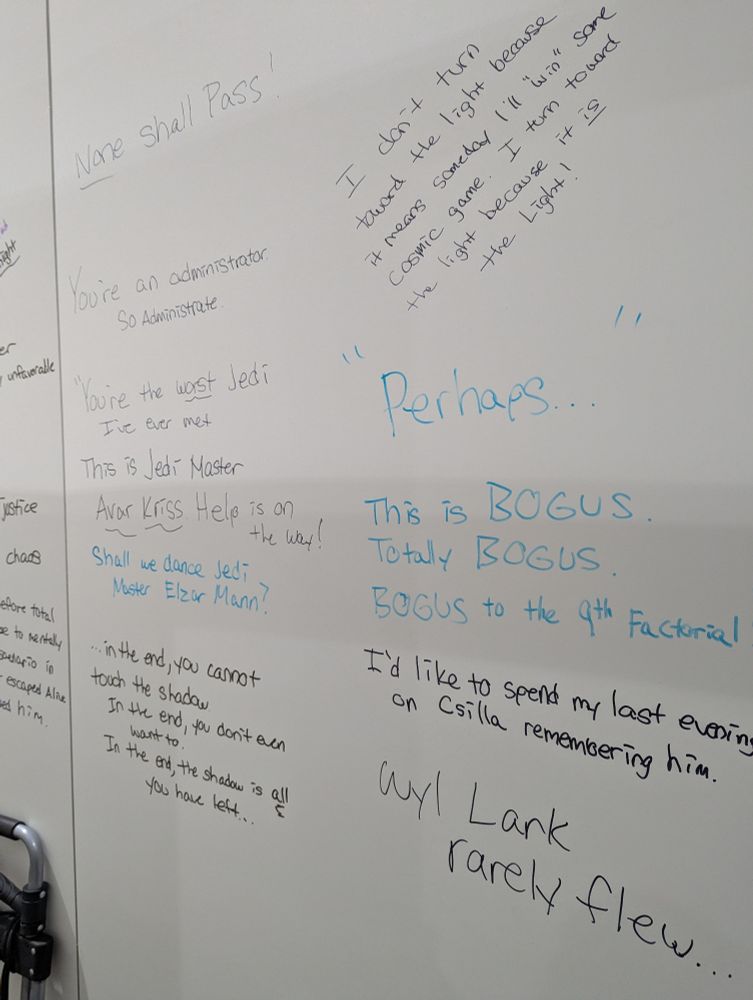 ight
er
unfavorable
justice
chaos
efore total
se to mentally
in
escaped Alive
him.
None shall Pass!
You're an administrator.
So Administrate.
"You're the worst Jedi
I've ever met
This is Jedi Master
Avar Kriss. Help is on
the way!
Shall we dance Jedi
Master Elzar Mann?
...in the end, you cannot
touch the shadow
In the end, you don't even
want to.
In the end, the shadow is all
you have left...
I don't turn
toward the light because
it means someday I'll "win" some
cosmic game. I turn toward
the light because it is
the Light!
"Perhaps..."
This is BOGUS.
Totally BOGUS.
BOGUS to the 9th Factorial
I'd like to spend my last evening
on Csilla remembering him.
Wyl Lark
rarely flew...